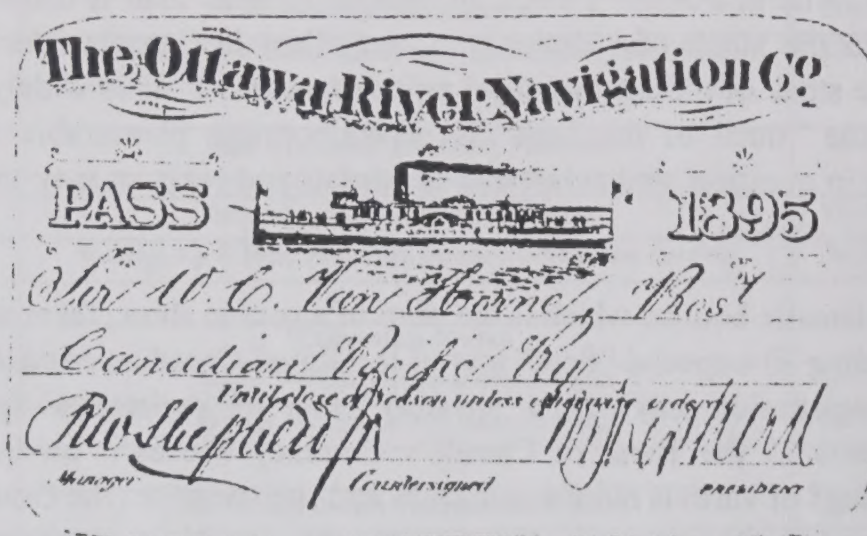 The Ottawa River Navigation Co.
PASS 1895
Sir W. C. Van Horne, Prest
Canadian Pacific Ry
Until close of Season unless otherwise ordered
RW Shepherd jr
Manager Countersigned PRESIDENT